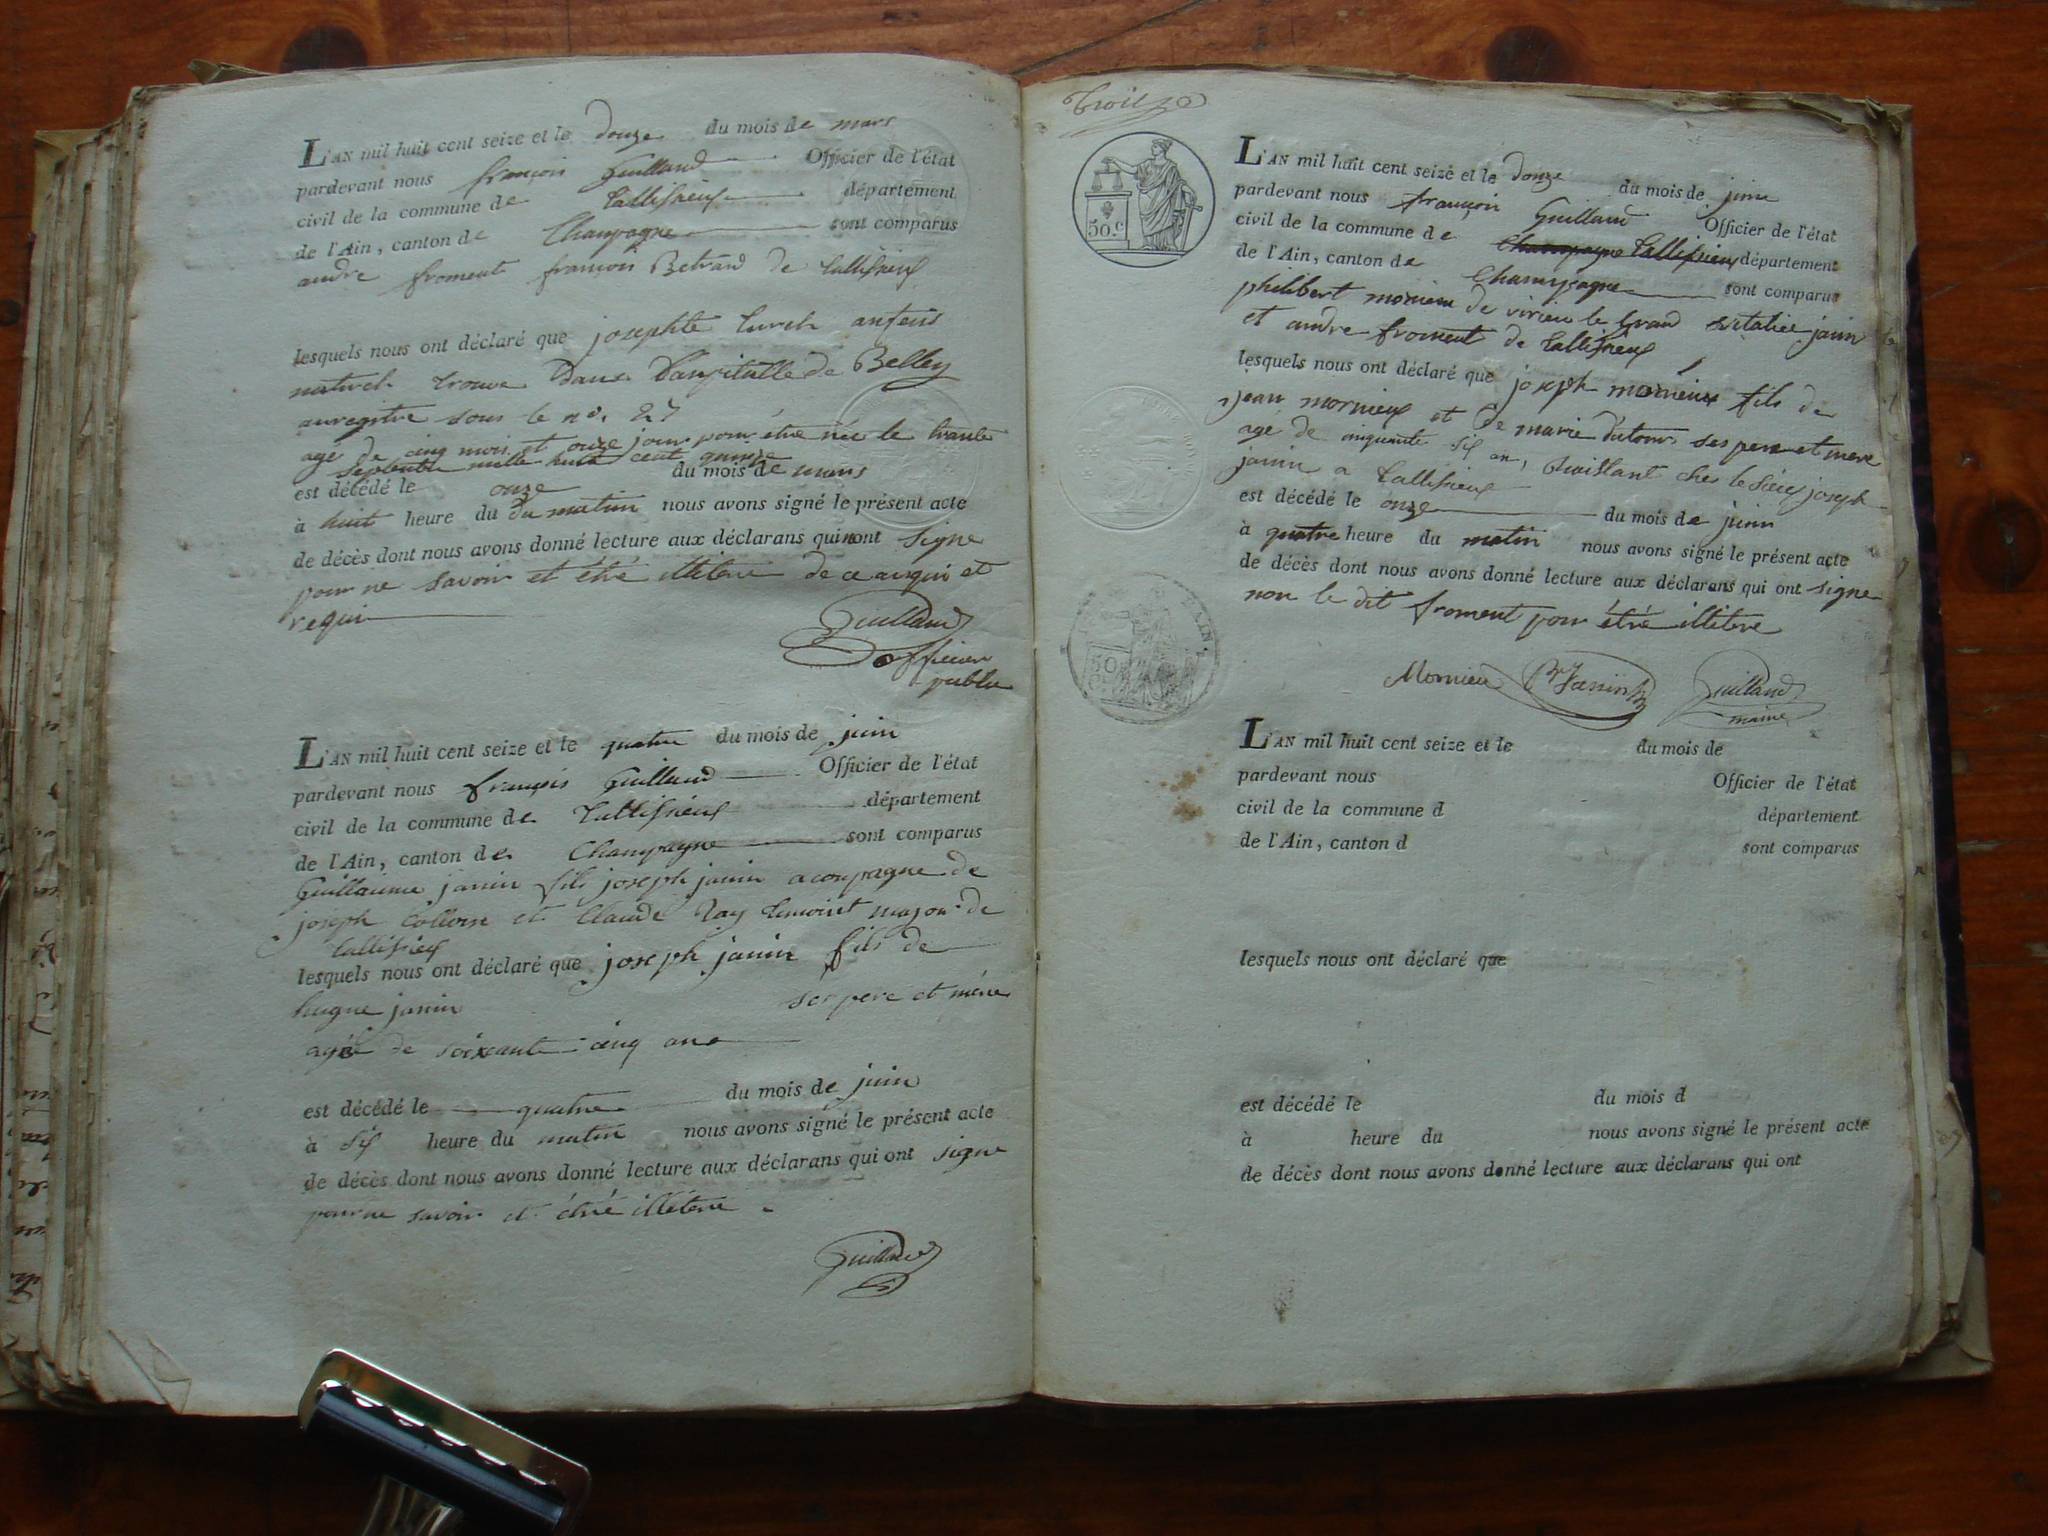 L'AN mil huit cent seize et le douze du mois de mars
pardevant nous françois Guilland Officier de l'état
civil de la commune de tallissieux département
de l'Ain, canton de Champagne sont comparus
andre froment françois Betrand de tallissieux
lesquels nous ont déclaré que josephte anfens
naturel trouve dans de Belley
sous le no. 27
age de cinq mois et onze jour pour être née le trante
septembre mille huit cent quinze
est décédé le onze du mois de mars
à huit heure du du matin nous avons signé le présent acte
de décès dont nous avons donné lecture aux déclarans qui nont signe
pour ne savoir et étré illitere de ce anquis et
requi
Guilland
officier
public
L'AN mil huit cent seize et le quatre du mois de juin
pardevant nous françois Guilland Officier de l'état
civil de la commune de tallissieux département
de l'Ain, canton de Champagne sont comparus
Guillaume janin fils joseph janin acompagne de
joseph et Claude Ray de
tallissieux
lesquels nous ont déclaré que joseph janin fils de
hugue janin ses pere et mére
agé de soixante cinq ans
est décédé le quatre du mois de juin
à six heure du matin nous avons signé le présent acte
de décès dont nous avons donné lecture aux déclarans qui ont signe
pour ne savoir et étré illétere
Guilland
50.c
L'AN mil huit cent seize et le douze du mois de juin
pardevant nous françois Guilland Officier de l'état
civil de la commune de Champagne tallissieux département
de l'Ain, canton de Champagne sont comparus
philibert mornieu de virieu le Grand janin
et andre froment de tallissieux
lesquels nous ont déclaré que joseph mornieux fils de
jean mornieux et de marie dutour ses pere et mere
agé de cinquante six an, chez le joseph
janin a tallissieux
est décédé le onze du mois de juin
à quatre heure du matin nous avons signé le présent acte
de décès dont nous avons donné lecture aux déclarans qui ont signe
non le dit froment pour étré illitere
Mornieu Janin Guilland
maire
AIN.
50
L'AN mil huit cent seize et le du mois de
pardevant nous Officier de l'état
civil de la commune d département
de l'Ain, canton d sont comparus
lesquels nous ont déclaré que
est décédé le du mois d
à heure du nous avons signé le présent acte
de décès dont nous avons donné lecture aux déclarans qui ont